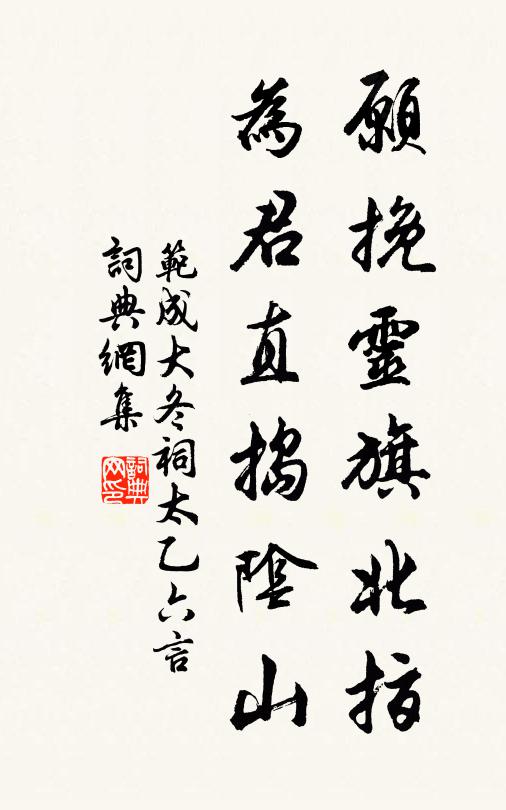 願挽靈旗北指
為君直搗陰山
範成大冬祠太乙六言
詞典網集
詞典網印